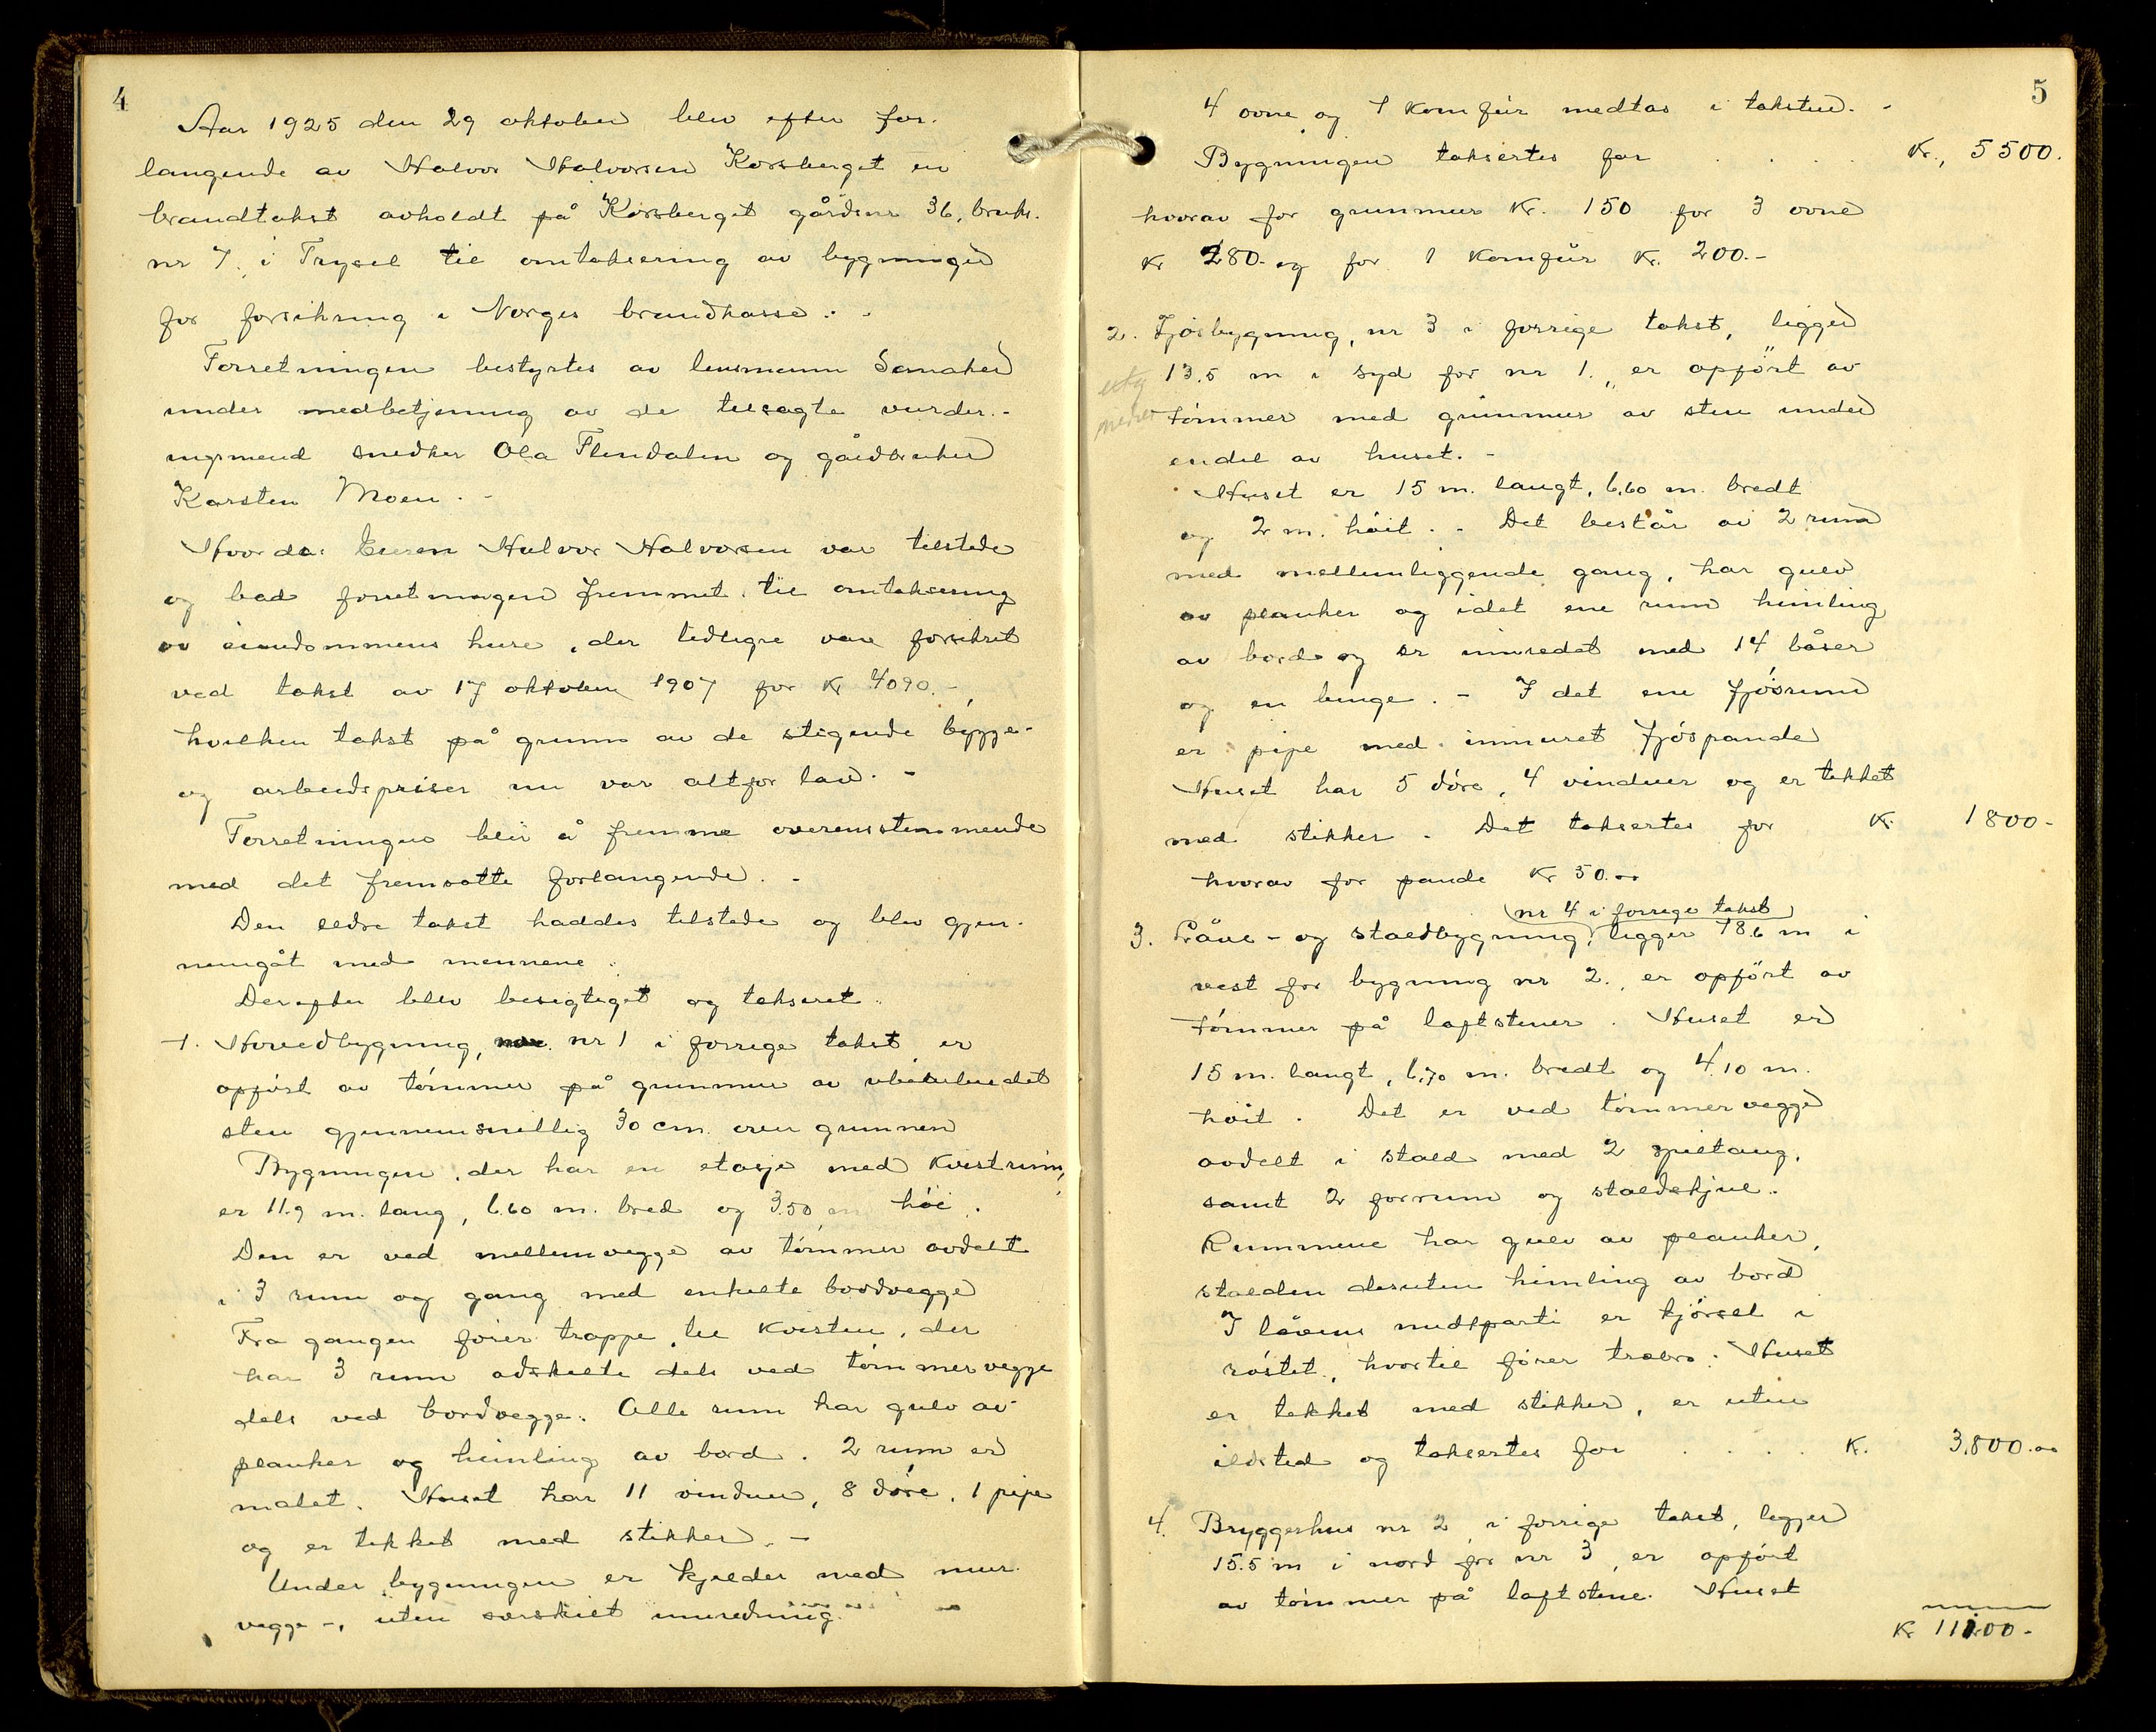 4
Aar 1925 den 29 oktober blev efter for-
langende av Halvor Halvorsen Korsberget en
brandtakst avholdt på Korsberget gårdsnr 36, bruks.
nr 7. i Trysil til omtaksering av bygninger
for forsikring i Norges brandkasse. -
Forretningen bestyrtes av lensmann Sæmaker
under medbetjening av de tilsagte vurder.-
ingsmend snedker Ola Flendalen og gårdbruker
Karsten Moen. -
Hvorda: Eieren Halvor Halvorsen var tilstede
og bad forretningen fremmet til omtaksering
av eiendommens huse, der tidligre var forsikret
ved takst av 17 oktober 1907 for Kr 4090.-,
hvilken takst på grunn av de stigende bygge-
og arbeidspriser nu var altfor lav. -
Forretningen blir å fremme overensstemmende
med det fremsatte forlangende. -
Den eldre takst haddes tilstede og blev gjen-
nemgåt med mennene.
Derefter blev besigtiget og takseret:
1. Hovedbygning, nr 1 i forrige takst er
opført av tømmer på grunmur av ubearbeidet
sten gjennemsnittlig 30 cm. over grunnen
Bygningen, der har en etasje med Kvistrum,
er 11.9 m. lang, 6.60 m. bred og 3.50 m høi.
Den er ved mellemvegge av tømmer avdelt
i 3 rum og gang med enkelte bordvegge
Fra gangen fører trappe til Kvisten, der
har 3 rum adskilte dels ved tømmervegge
dels ved bordvegge. Alle rum har gulv av
planker og himling av bord. 2 rum er
malet. Huset har 11 vinduer, 8 døre, 1 pipe
og er tekket med stikker. -
Under bygningen er kjelder med mur-
vegge -, uten særskilt innredning.
5
4 ovne og 1 komfür medtas i taksten. -
Bygningen taksertes for . . . . Kr., 5500.
hvorav for grunmur Kr. 150 for 3 ovne
Kr 280.- og for 1 komfür Kr. 200.-
2. Fjøsbygning, nr 3 i forrige takst, ligger
13.5 m i syd for nr 1. er opført av
tømmer med grunmur av sten under
endel av huset. -
Huset er 15 m. langt, 6,60 m. bredt
og 2 m. høit. - Det består av 2 rum
med mellemliggende gang, har gulv
av planker og idet ene rum himling
av bord og er innredet med 14 båser
og en binge. - I det ene fjøsrum
er pipe med innmuret fjøspande
Huset har 5 døre, 4 vinduer og er tekket
med stikker. Det taksertes for K. 1800-
hvorav for pande Kr 50.00
(nr 4 i forrige takst)
3. Låve- og staldbygning, ligger 18.6 m i
vest for bygning nr 2., er opført av
tømmer på laftstener. Huset er
15 m. langt, 6,70 m. bredt og 4.10 m.
høit. Det er ved tømmervegge
avdelt i stald med 2 spiltaug,
samt 2 forrum og staldskjul.
Rummene har gulv av planker,
stalden desuten himling av bord
I låvens midtparti er kjørsel i
røstet, hvortil fører træbro. Huset
er tekket med stikker, er uten
ildsted og taksertes for . . . . K. 3.800.00
4. Bryggerhus nr 2 i forrige takst, ligger
15.5 m i nord for nr 3, er opført
av tømmer på laftstene. Huset
Kr 11100.-